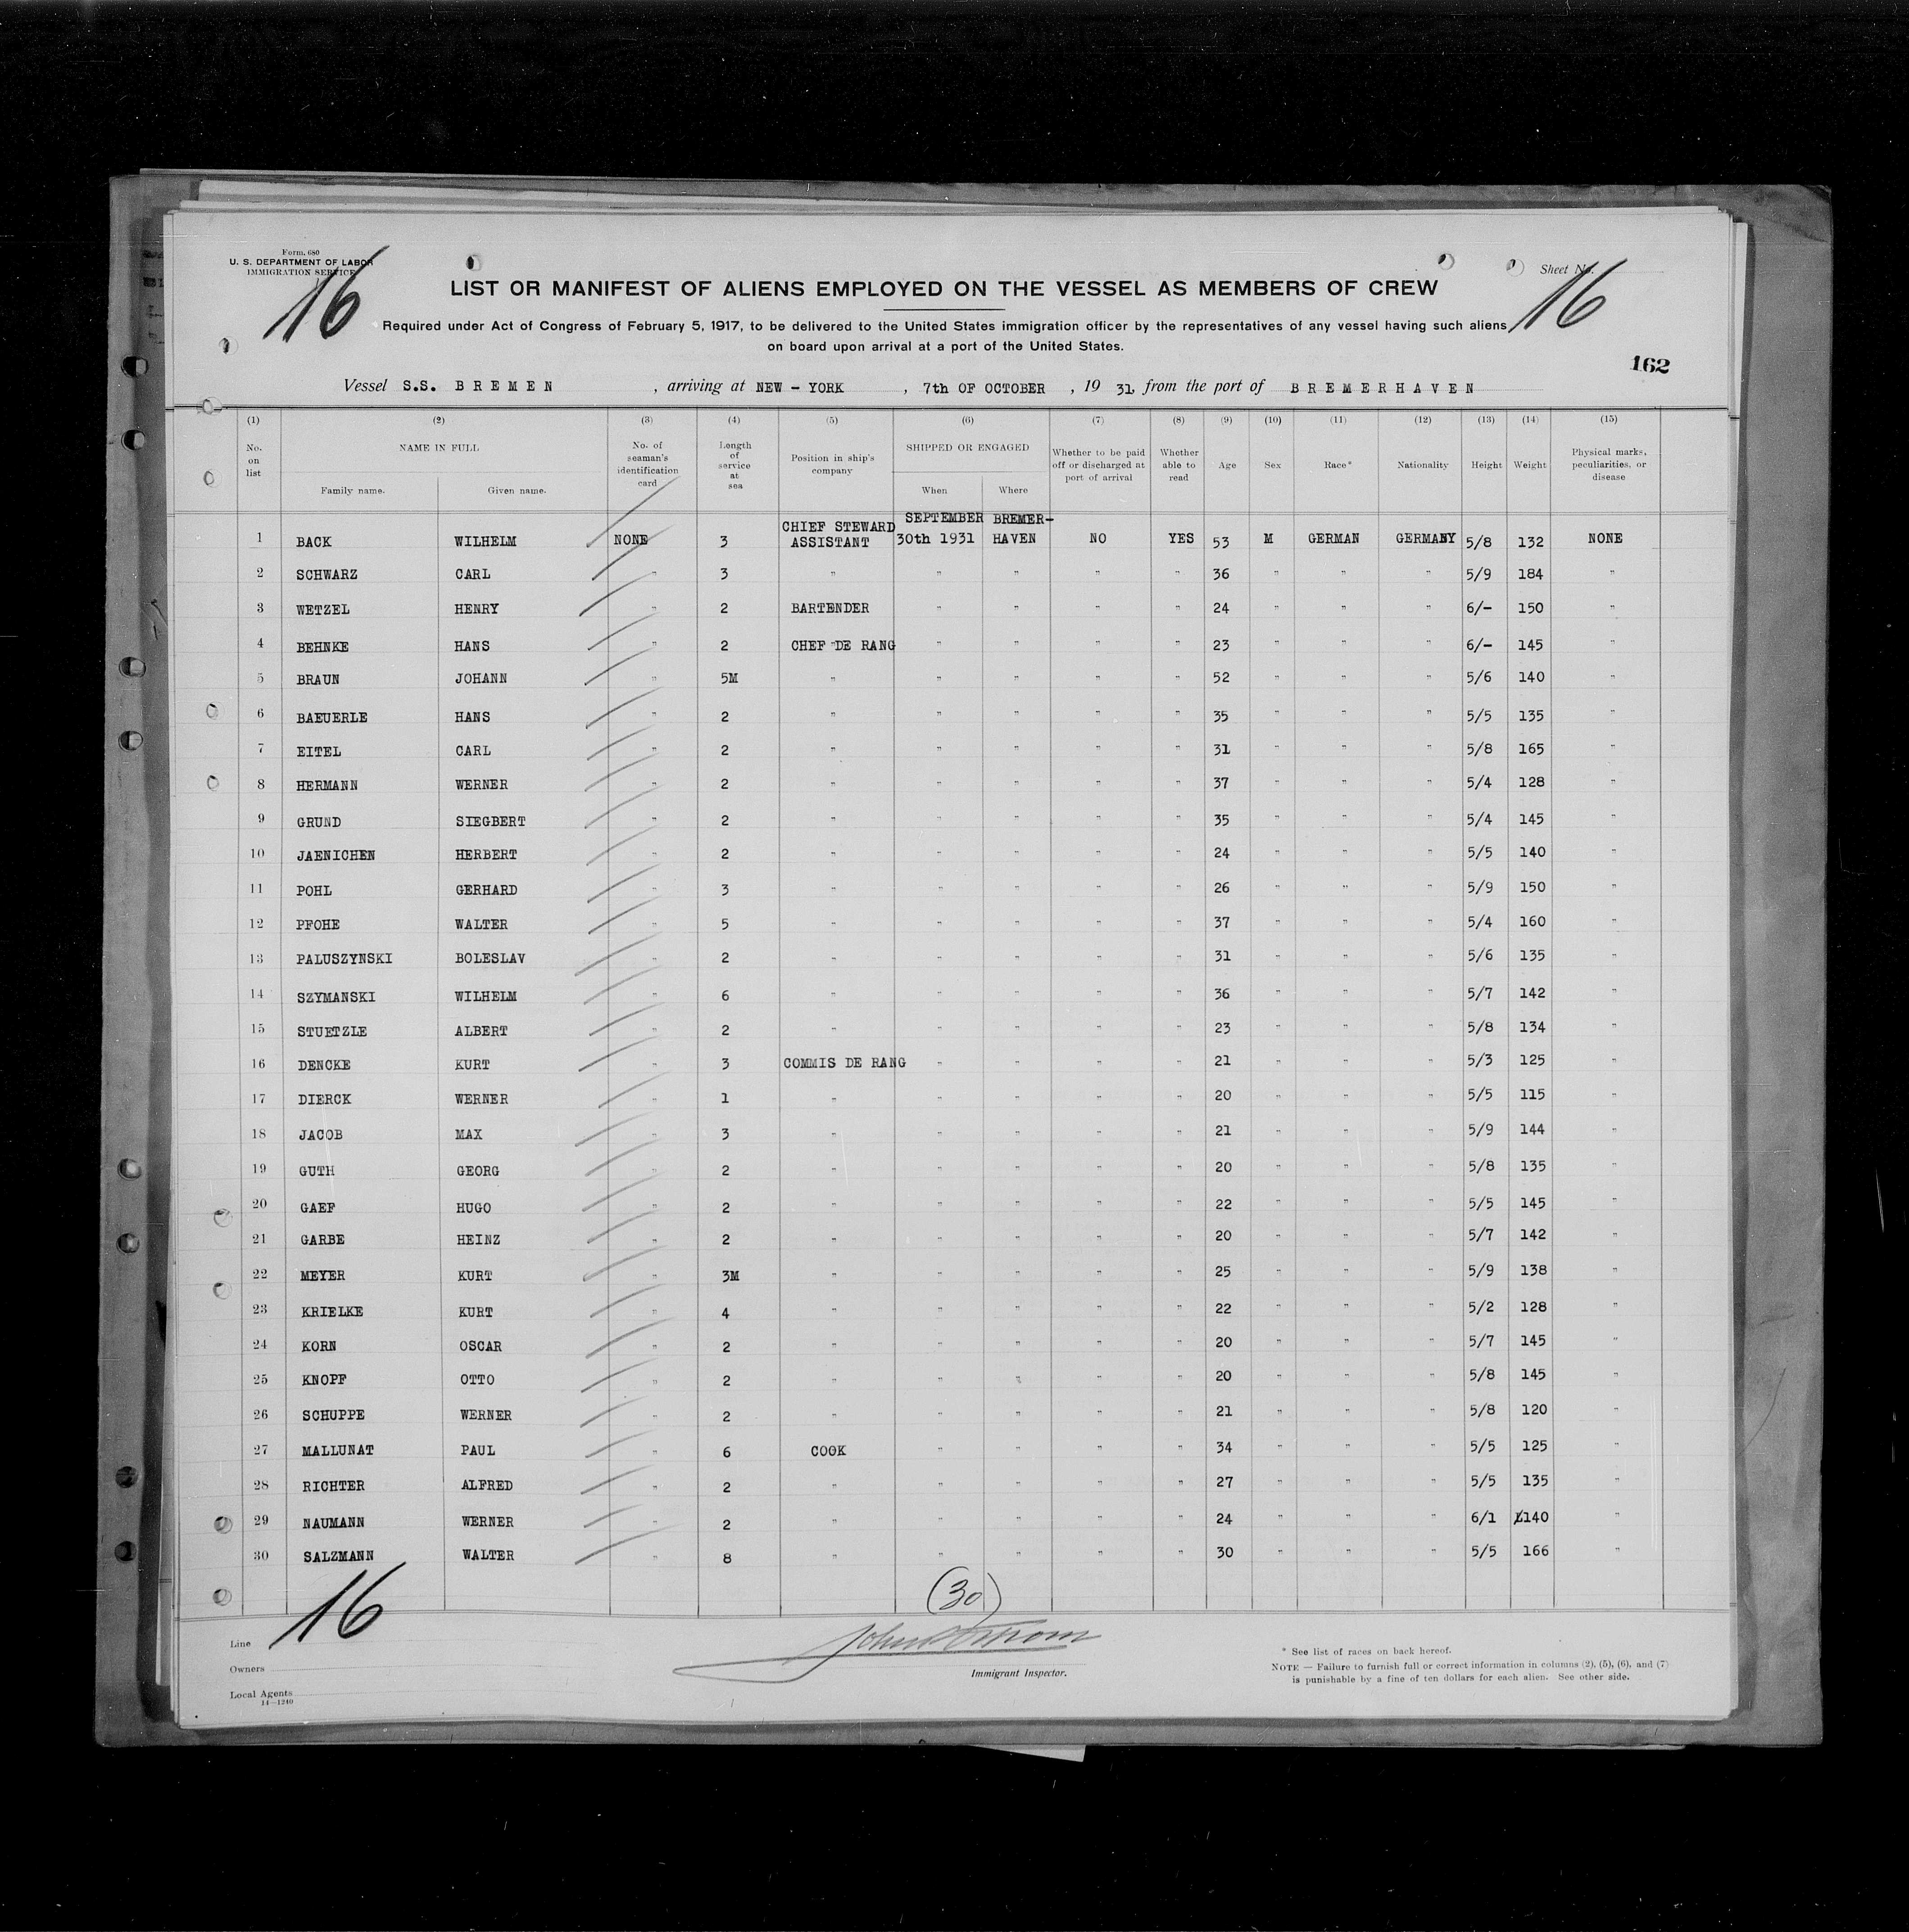 Form 680
U. S. DEPARTMENT OF LABOR
IMMIGRATION SERVICE
16
Sheet No.
16
LIST OR MANIFEST OF ALIENS EMPLOYED ON THE VESSEL AS MEMBERS OF CREW
Required under Act of Congress of February 5, 1917, to be delivered to the United States immigration officer by the representatives of any vessel having such aliens
on board upon arrival at a port of the United States.
162
Vessel S.S. BREMEN , arriving at NEW - YORK , 7th OF OCTOBER , 19 31, from the port of BREMERHAVEN
(1) (2) (3) (4) (5) (6) (7) (8) (9) (10) (11) (12) (13) (14) (15)
No. on list NAME IN FULL Family name. Given name. No. of seaman's identification card Length of service at sea Position in ship's company SHIPPED OR ENGAGED When Where Whether to be paid off or discharged at port of arrival Whether able to read Age Sex Race* Nationality Height Weight Physical marks, peculiarities, or disease
CHIEF STEWARD SEPTEMBER BREMER-
1 BACK WILHELM NONE 3 ASSISTANT 30th 1931 HAVEN NO YES 53 M GERMAN GERMANY 5/8 132 NONE
2 SCHWARZ CARL " 3 " " " " " 36 " " " 5/9 184 "
3 WETZEL HENRY " 2 BARTENDER " " " " 24 " " " 6/- 150 "
4 BEHNKE HANS " 2 CHEF DE RANG " " " " 23 " " " 6/- 145 "
5 BRAUN JOHANN " 5M " " " " " 52 " " " 5/6 140 "
6 BAEUERLE HANS " 2 " " " " " 35 " " " 5/5 135 "
7 EITEL CARL " 2 " " " " " 31 " " " 5/8 165 "
8 HERMANN WERNER " 2 " " " " " 37 " " " 5/4 128 "
9 GRUND SIEGBERT " 2 " " " " " 35 " " " 5/4 145 "
10 JAENICHEN HERBERT " 2 " " " " " 24 " " " 5/5 140 "
11 POHL GERHARD " 3 " " " " " 26 " " " 5/9 150 "
12 PFOHE WALTER " 5 " " " " " 37 " " " 5/4 160 "
13 PALUSZYNSKI BOLESLAV " 2 " " " " " 31 " " " 5/6 135 "
14 SZYMANSKI WILHELM " 6 " " " " " 36 " " " 5/7 142 "
15 STUETZLE ALBERT " 2 " " " " " 23 " " " 5/8 134 "
16 DENCKE KURT " 3 COMMIS DE RANG " " " " 21 " " " 5/3 125 "
17 DIERCK WERNER " 1 " " " " " 20 " " " 5/5 115 "
18 JACOB MAX " 3 " " " " " 21 " " " 5/9 144 "
19 GUTH GEORG " 2 " " " " " 20 " " " 5/8 135 "
20 GAEF HUGO " 2 " " " " " 22 " " " 5/5 145 "
21 GARBE HEINZ " 2 " " " " " 20 " " " 5/7 142 "
22 MEYER KURT " 3M " " " " " 25 " " " 5/9 138 "
23 KRIELKE KURT " 4 " " " " " 22 " " " 5/2 128 "
24 KORN OSCAR " 2 " " " " " 20 " " " 5/7 145 "
25 KNOPF OTTO " 2 " " " " " 20 " " " 5/8 145 "
26 SCHUPPE WERNER " 2 " " " " " 21 " " " 5/8 120 "
27 MALLUNAT PAUL " 6 COOK " " " " 34 " " " 5/5 125 "
28 RICHTER ALFRED " 2 " " " " " 27 " " " 5/5 135 "
29 NAUMANN WERNER " 2 " " " " " 24 " " " 6/1 140 "
30 SALZMANN WALTER " 8 " " " " " 30 " " " 5/5 166 "
(30)
16
Line
Owners
Local Agents
14—1240
Immigrant Inspector.
* See list of races on back hereof.
NOTE — Failure to furnish full or correct information in columns (2), (5), (6), and (7)
is punishable by a fine of ten dollars for each alien. See other side.